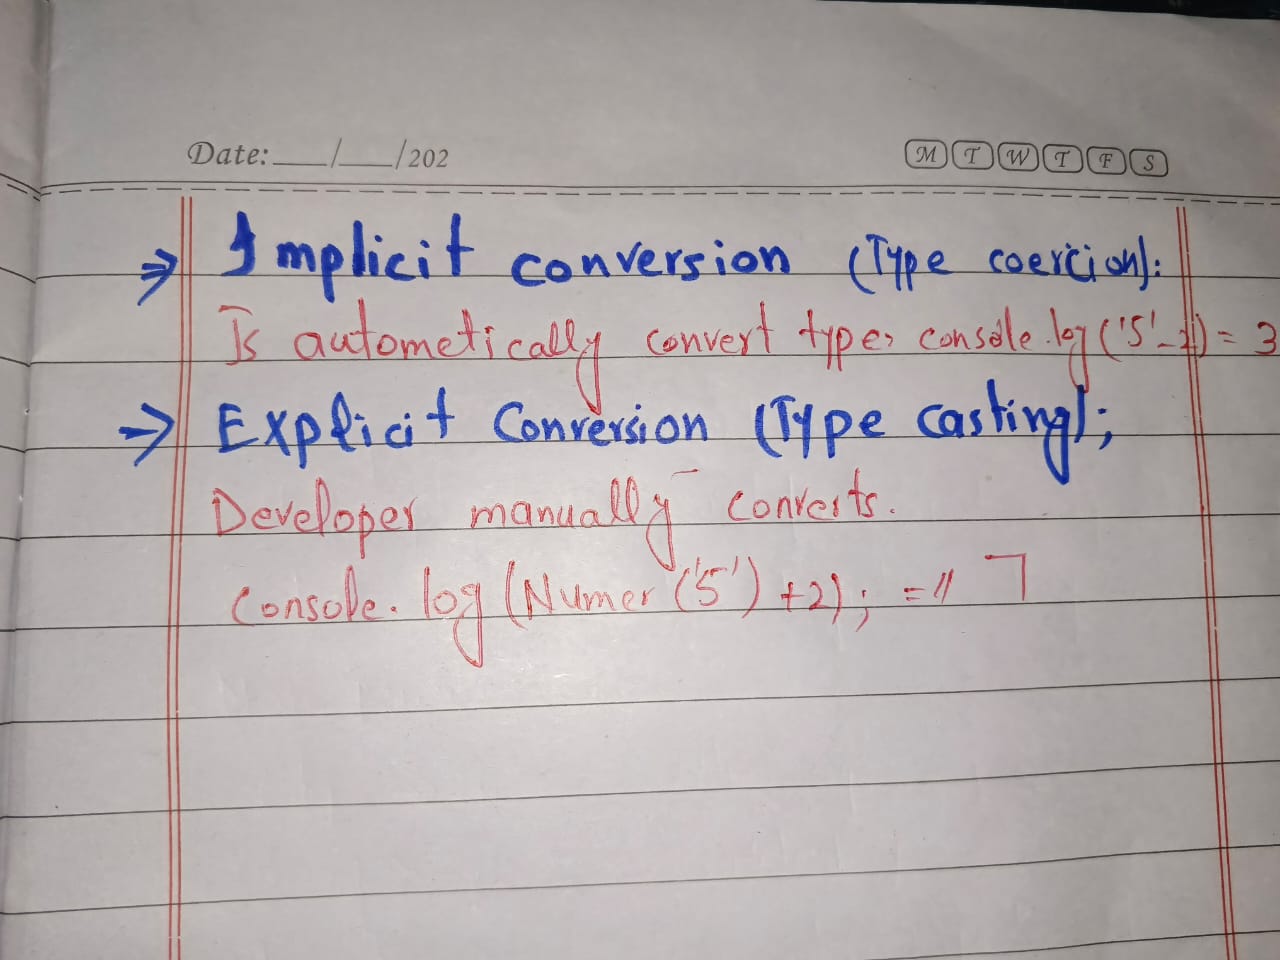 Date: ___/___/202 M T W T F S
⇒ Implicit conversion (Type coercion):
Is autometically convert type. console.log('5'-2) = 3
→ Explicit Conversion (Type casting);
Developer manually converts.
Console.log(Numer('5')+2); =// 7